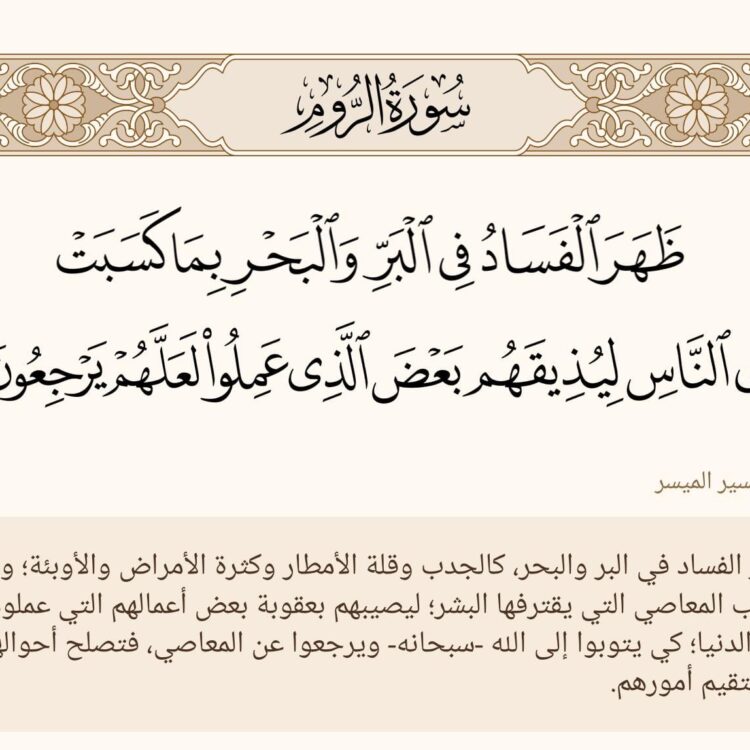 سُورَةُ الرُّومِ
ظَهَرَ ٱلْفَسَادُ فِى ٱلْبَرِّ وَٱلْبَحْرِ بِمَا كَسَبَتْ
ٱلنَّاسِ لِيُذِيقَهُم بَعْضَ ٱلَّذِى عَمِلُوا۟ لَعَلَّهُمْ يَرْجِعُونَ
الميسر
الفساد في البر والبحر، كالجدب وقلة الأمطار وكثرة الأمراض والأوبئة؛
المعاصي التي يقترفها البشر؛ ليصيبهم بعقوبة بعض أعمالهم التي
الدنيا؛ كي يتوبوا إلى الله -سبحانه- ويرجعوا عن المعاصي، فتصلح
أمورهم.